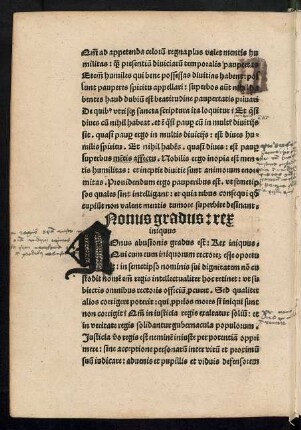 Qm̄ ad appetenda celorū regna plus valet mentis hu
militas: q̄ƺ presentiū diuiciarū temporalis paupertas
Etem̄ humiles qui bene possessas diuitias habent: pos
sunt pauperes spiritu appellari: superbos aūt nihil ha
bentes haud dubiū est beatitudine paupertatis priuari
De quibꝰ vtrisqƺ sancta scriptura ita loquitur: Est q̄si
diues cū nihil habeat: et ē q̄si paup cū in multꝭ diuitijs
sit. quasi paup ergo in multis diuicijs: est diues hu
milis spiritu. Et nihil habēs. quasi diues: est paup
superbus mētis affectu. Nobilis ergo inopia est men
tis humilitas: et ineptie diuitie sunt animorum enor
mitas. Prouidendum ergo pauperibus est. vt semetip
sos quales sint intelligant: et quia rebus consequi qd̄
cupiūt non valent mentis tumore superbire desinant.
Nonus gradus: rex
iniquus
Nonus abusionis gradus est: Rex iniquus
Qui cum eum iniquorum rectorē esse oportu
it: in semetipso nominis sui dignitatem nō cu
stodit nomē em̄ regis intellectualiter hoc retinet: vt su
biectis omnibus rectoris officiū pcuret. Sed qualiter
alios corrigere poterit: qui pprios mores si iniqui sunt
non corrigit: Qm̄ in iusticia regis exaltatur soliū: et
in veritate regis solidantur gubernacula populorum.
Iusticia vo regis est neminē iniuste per potentiā oppri
mere: sine acceptione personarū inter virū et proximū
suū iudicare: aduenis et pupillis et viduis defensorem